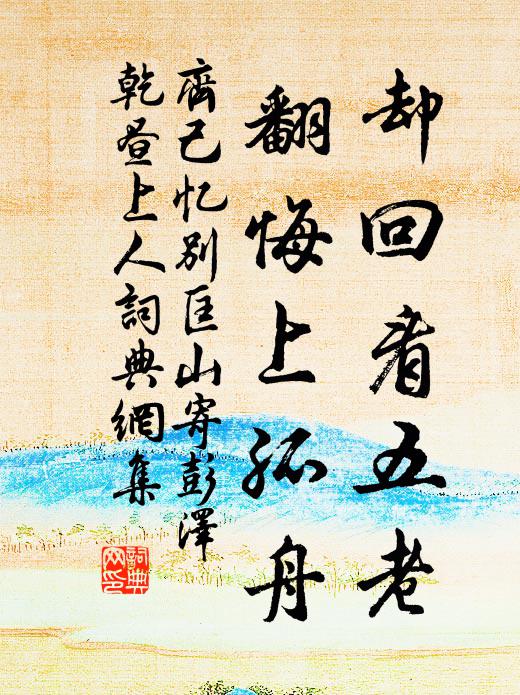 却回看五老
翻悔上孤舟
齊己忆别匡山寄彭澤
乾昼上人詞典網集
詞典网印